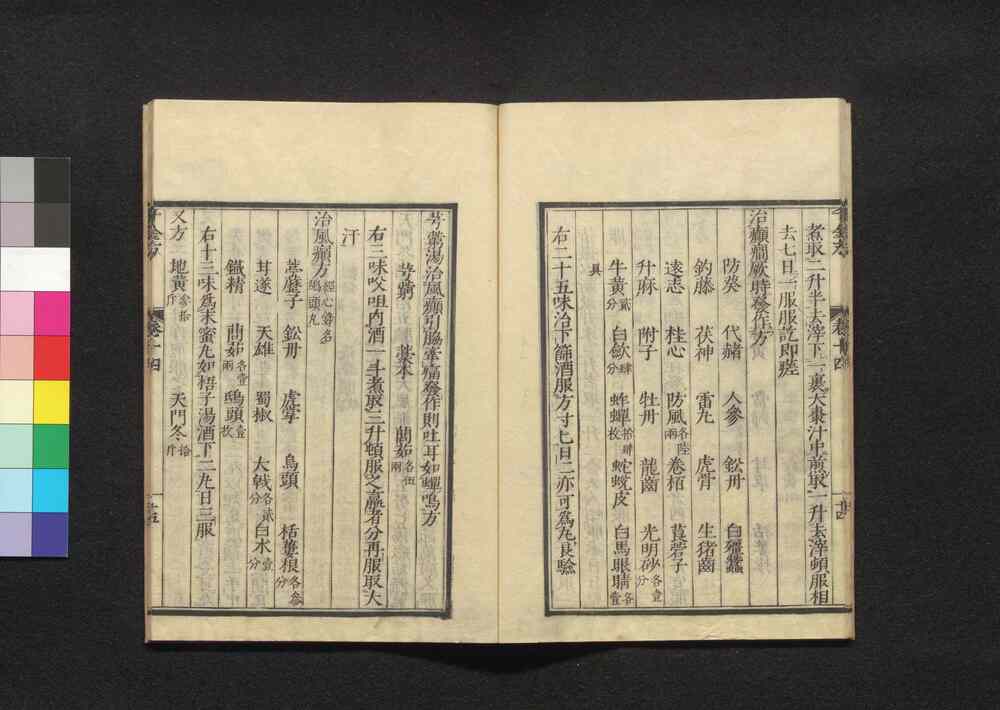 煮取二升半去滓下二裹大棗汁中煎取一升去滓頓服相
去七日一服服訖即瘥
治癲癇厥時發作方
防葵 代赭 人參 鈆丹 白殭蠶
釣藤 茯神 雷丸 虎骨 生猪齒
遠志 桂心 防風各陸兩 卷栢 莨菪子
升麻 附子 牡丹 龍齒 光明砂各壹分
牛黄貳分 白歛肆分 蚱蟬拾肆枚 蛇蛻皮 白馬眼睛各壹
具
右二十五味治下篩酒服方寸匕日二亦可爲丸良驗
千金方 卷十四 廿四
芎藭湯治風癲引脇牽痛發作則吐耳如蟬鳴方
芎藭 藁本 䕡茹各伍兩
右三味㕮咀内酒一斗煮取三升頓服之羸者分再服取大
汗
治風癲方經心錄名鴟頭丸
葶藶子 鈆丹 虎掌 烏頭 栝蔞根各參分
甘遂 天雄 蜀椒 大戟各貳分 白朮壹分
鐵精 䕡茹各壹兩 鴟頭壹枚
右十三味爲末蜜丸如梧子湯酒下二丸日三服
又方 地黄參拾斤 天門冬拾斤
千金方 卷十四 廿五